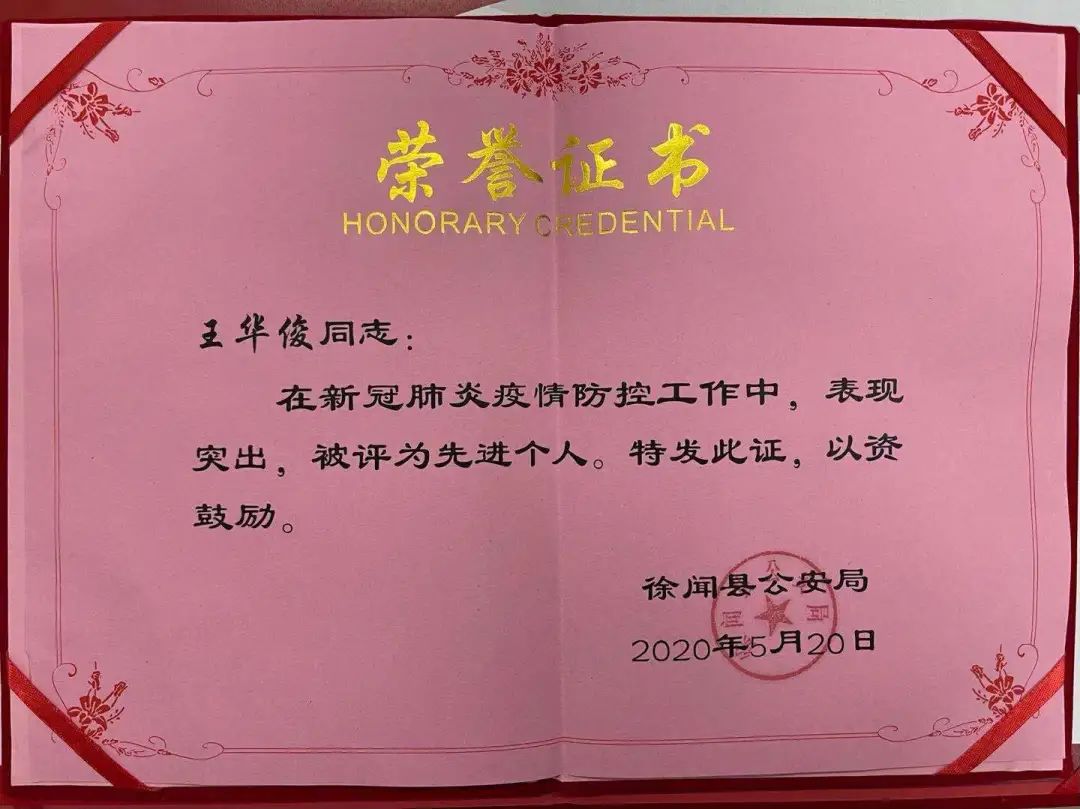 荣誉证书
HONORARY CREDENTIAL
王华俊同志：
在新冠肺炎疫情防控工作中，表现
突出，被评为先进个人。特发此证，以资
鼓励。
徐闻县公安局
2020年5月20日